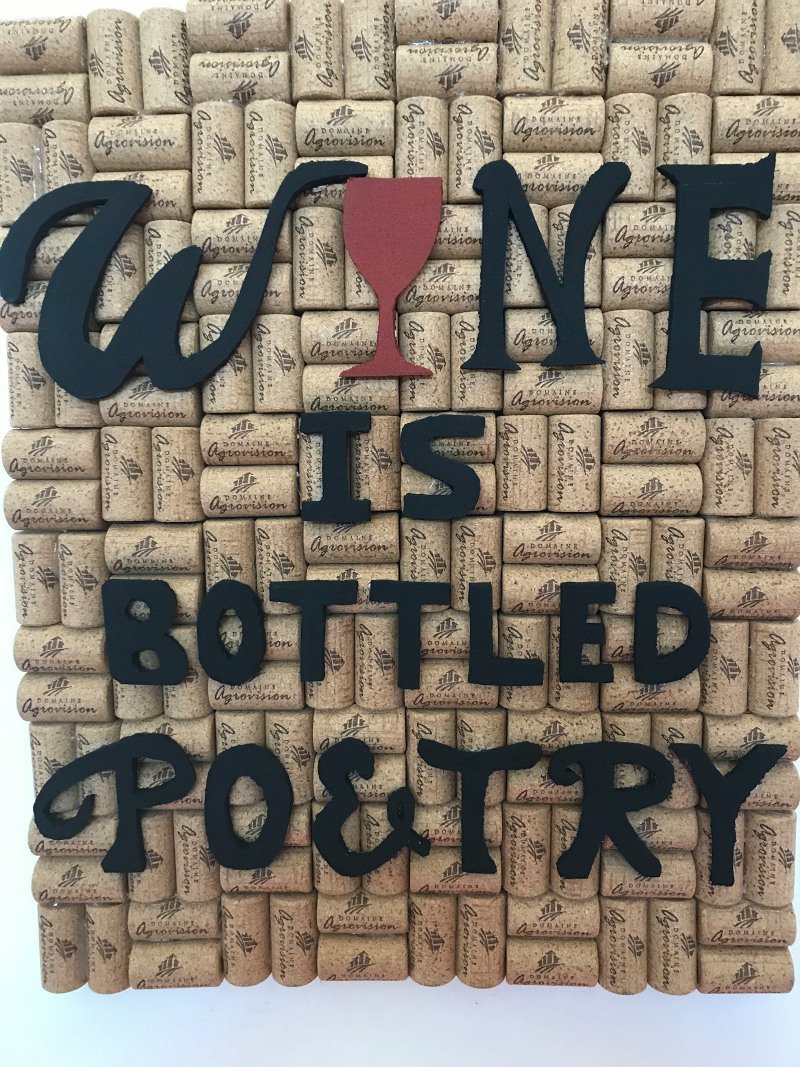 WINE
IS
BOTTLED
POETRY
DOMAINE
Agrovision